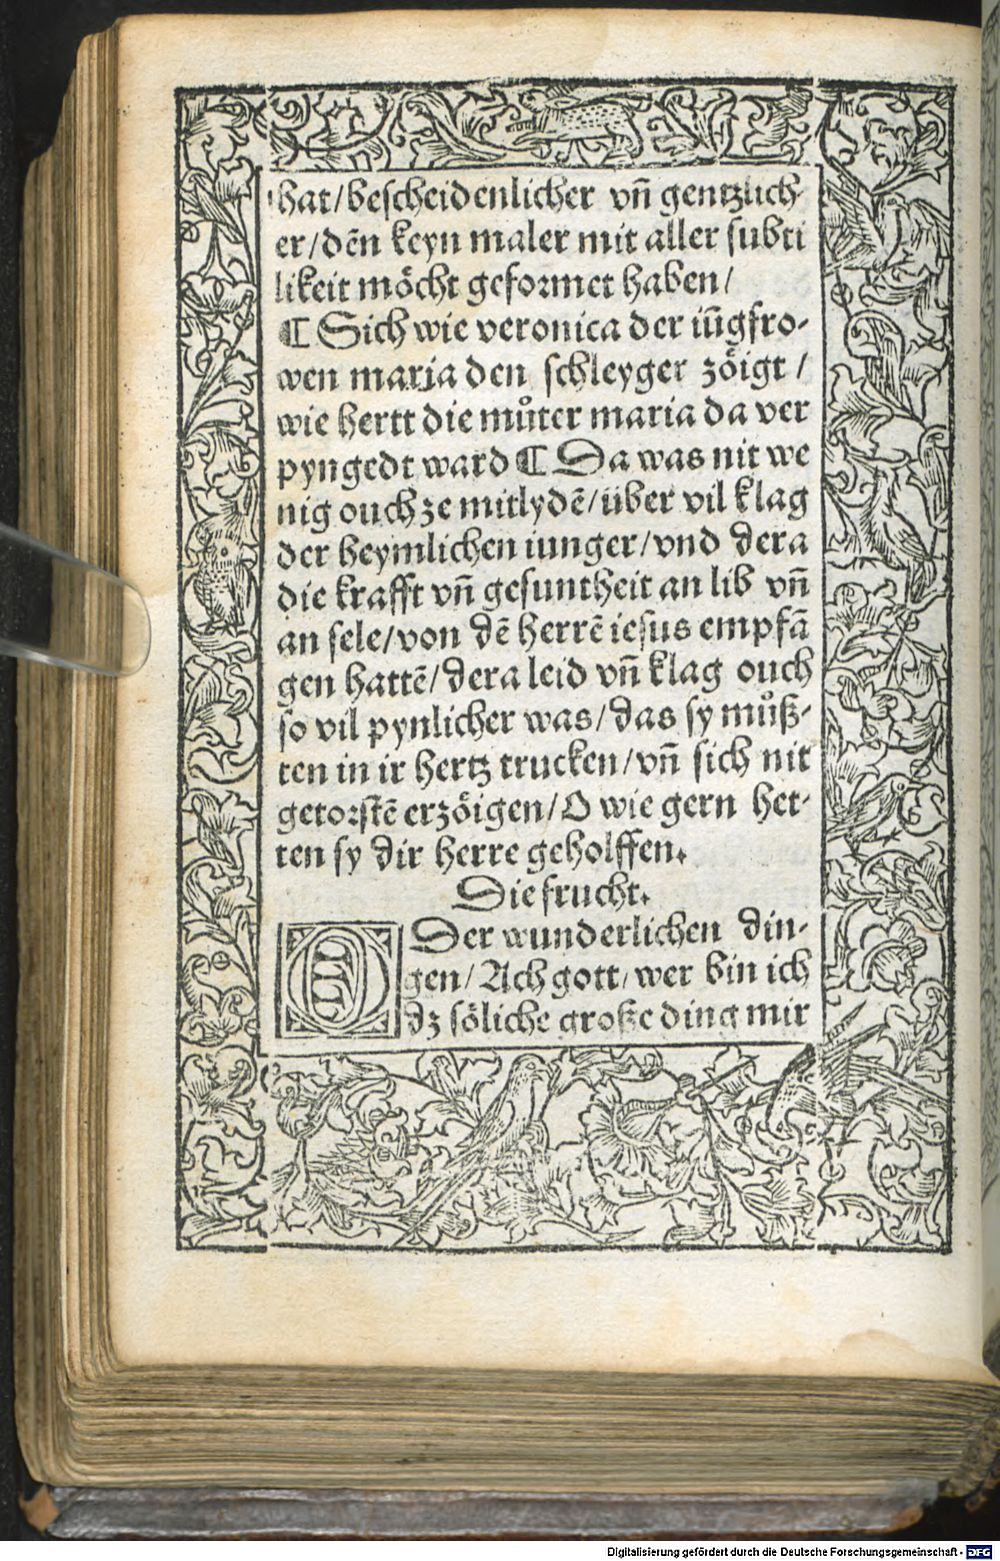 hat/bescheidenlicher vn̄ gentzlich
er/dēn keyn maler mit aller subti
likeit mo̎cht geformet haben/
¶ Sich wie veronica der iūgfro-
wen maria den schleyger zo̎igt /
wie hertt die můter maria da ver
pyngedt ward ¶ Da was nit we
nig ouch ze mitlydē/über vil klag
der heymlichen iunger/vnd dera
die krafft vn̄ gesuntheit an lib vn̄
an sele/von dē herrē iesus empfā
gen hattē/dera leid vn̄ klag ouch
so vil pynlicher was/das sy můß-
ten in ir hertz trucken/vn̄ sich nit
getorstē erzo̎igen/O wie gern het-
ten sy dir herre geholffen.
Die frucht.
O Der wunderlichen din-
gen/Ach gott/wer bin ich
dz söliche große ding mir
Digitalisierung gefördert durch die Deutsche Forschungsgemeinschaft - DFG